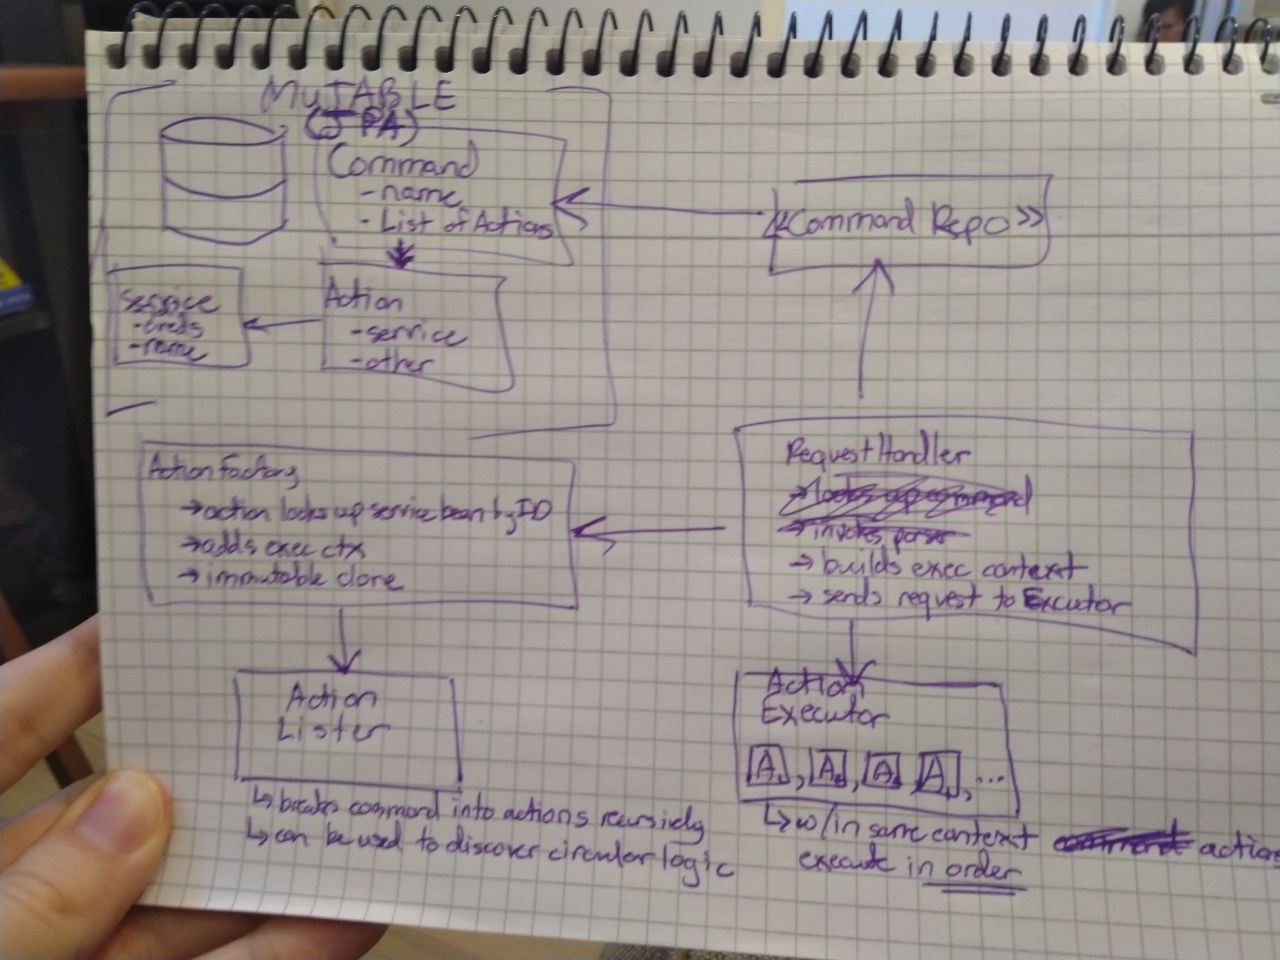 MUTABLE
(JPA)
Command
- name
- List of Actions
Service
- creds
- name
Action
- service
- other
<<Command Repo>>
ActionFactory
→ action looks up service bean by ID
→ adds exec ctx
→ immutable clone
RequestHandler
→ looks up command
→ invokes parser
→ builds exec context
→ sends request to Executor
Action
Lister
↳ breaks command into actions recursively
↳ can be used to discover circular logic
Action
Executor
A, A, A, A, ...
↳ w/in same context actions
execute in order